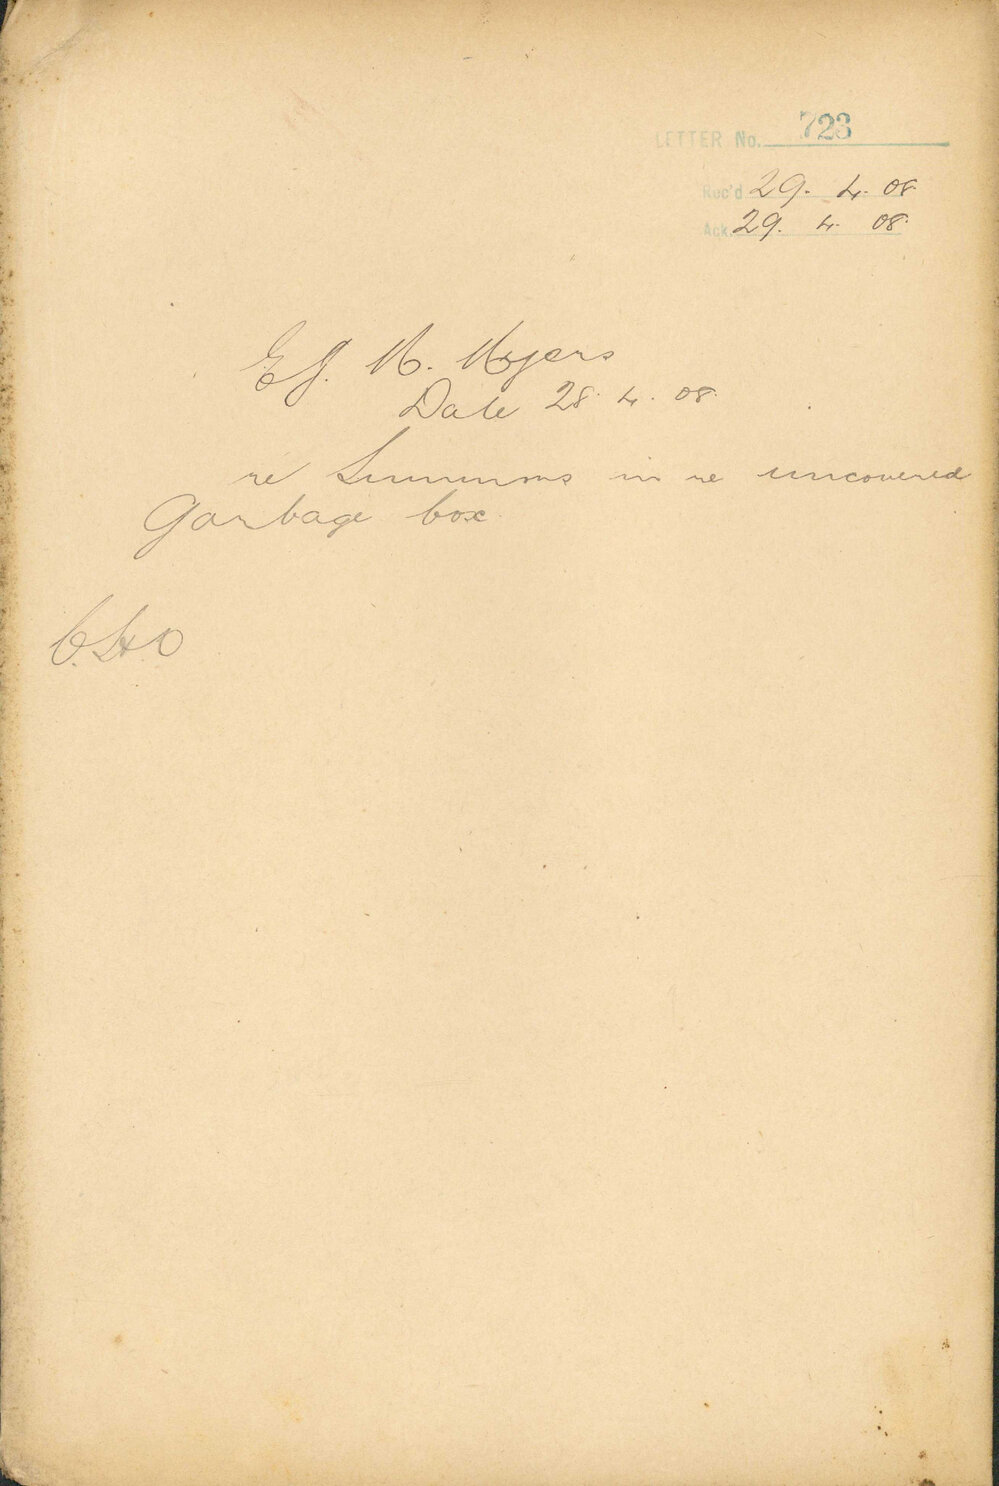 LETTER No. 723
Rec'd 29. 4. 08.
Ack. 29. 4. 08.
E. J. M. Myers
Date 28. 4. 08.
re Summons in re uncovered
Garbage box.